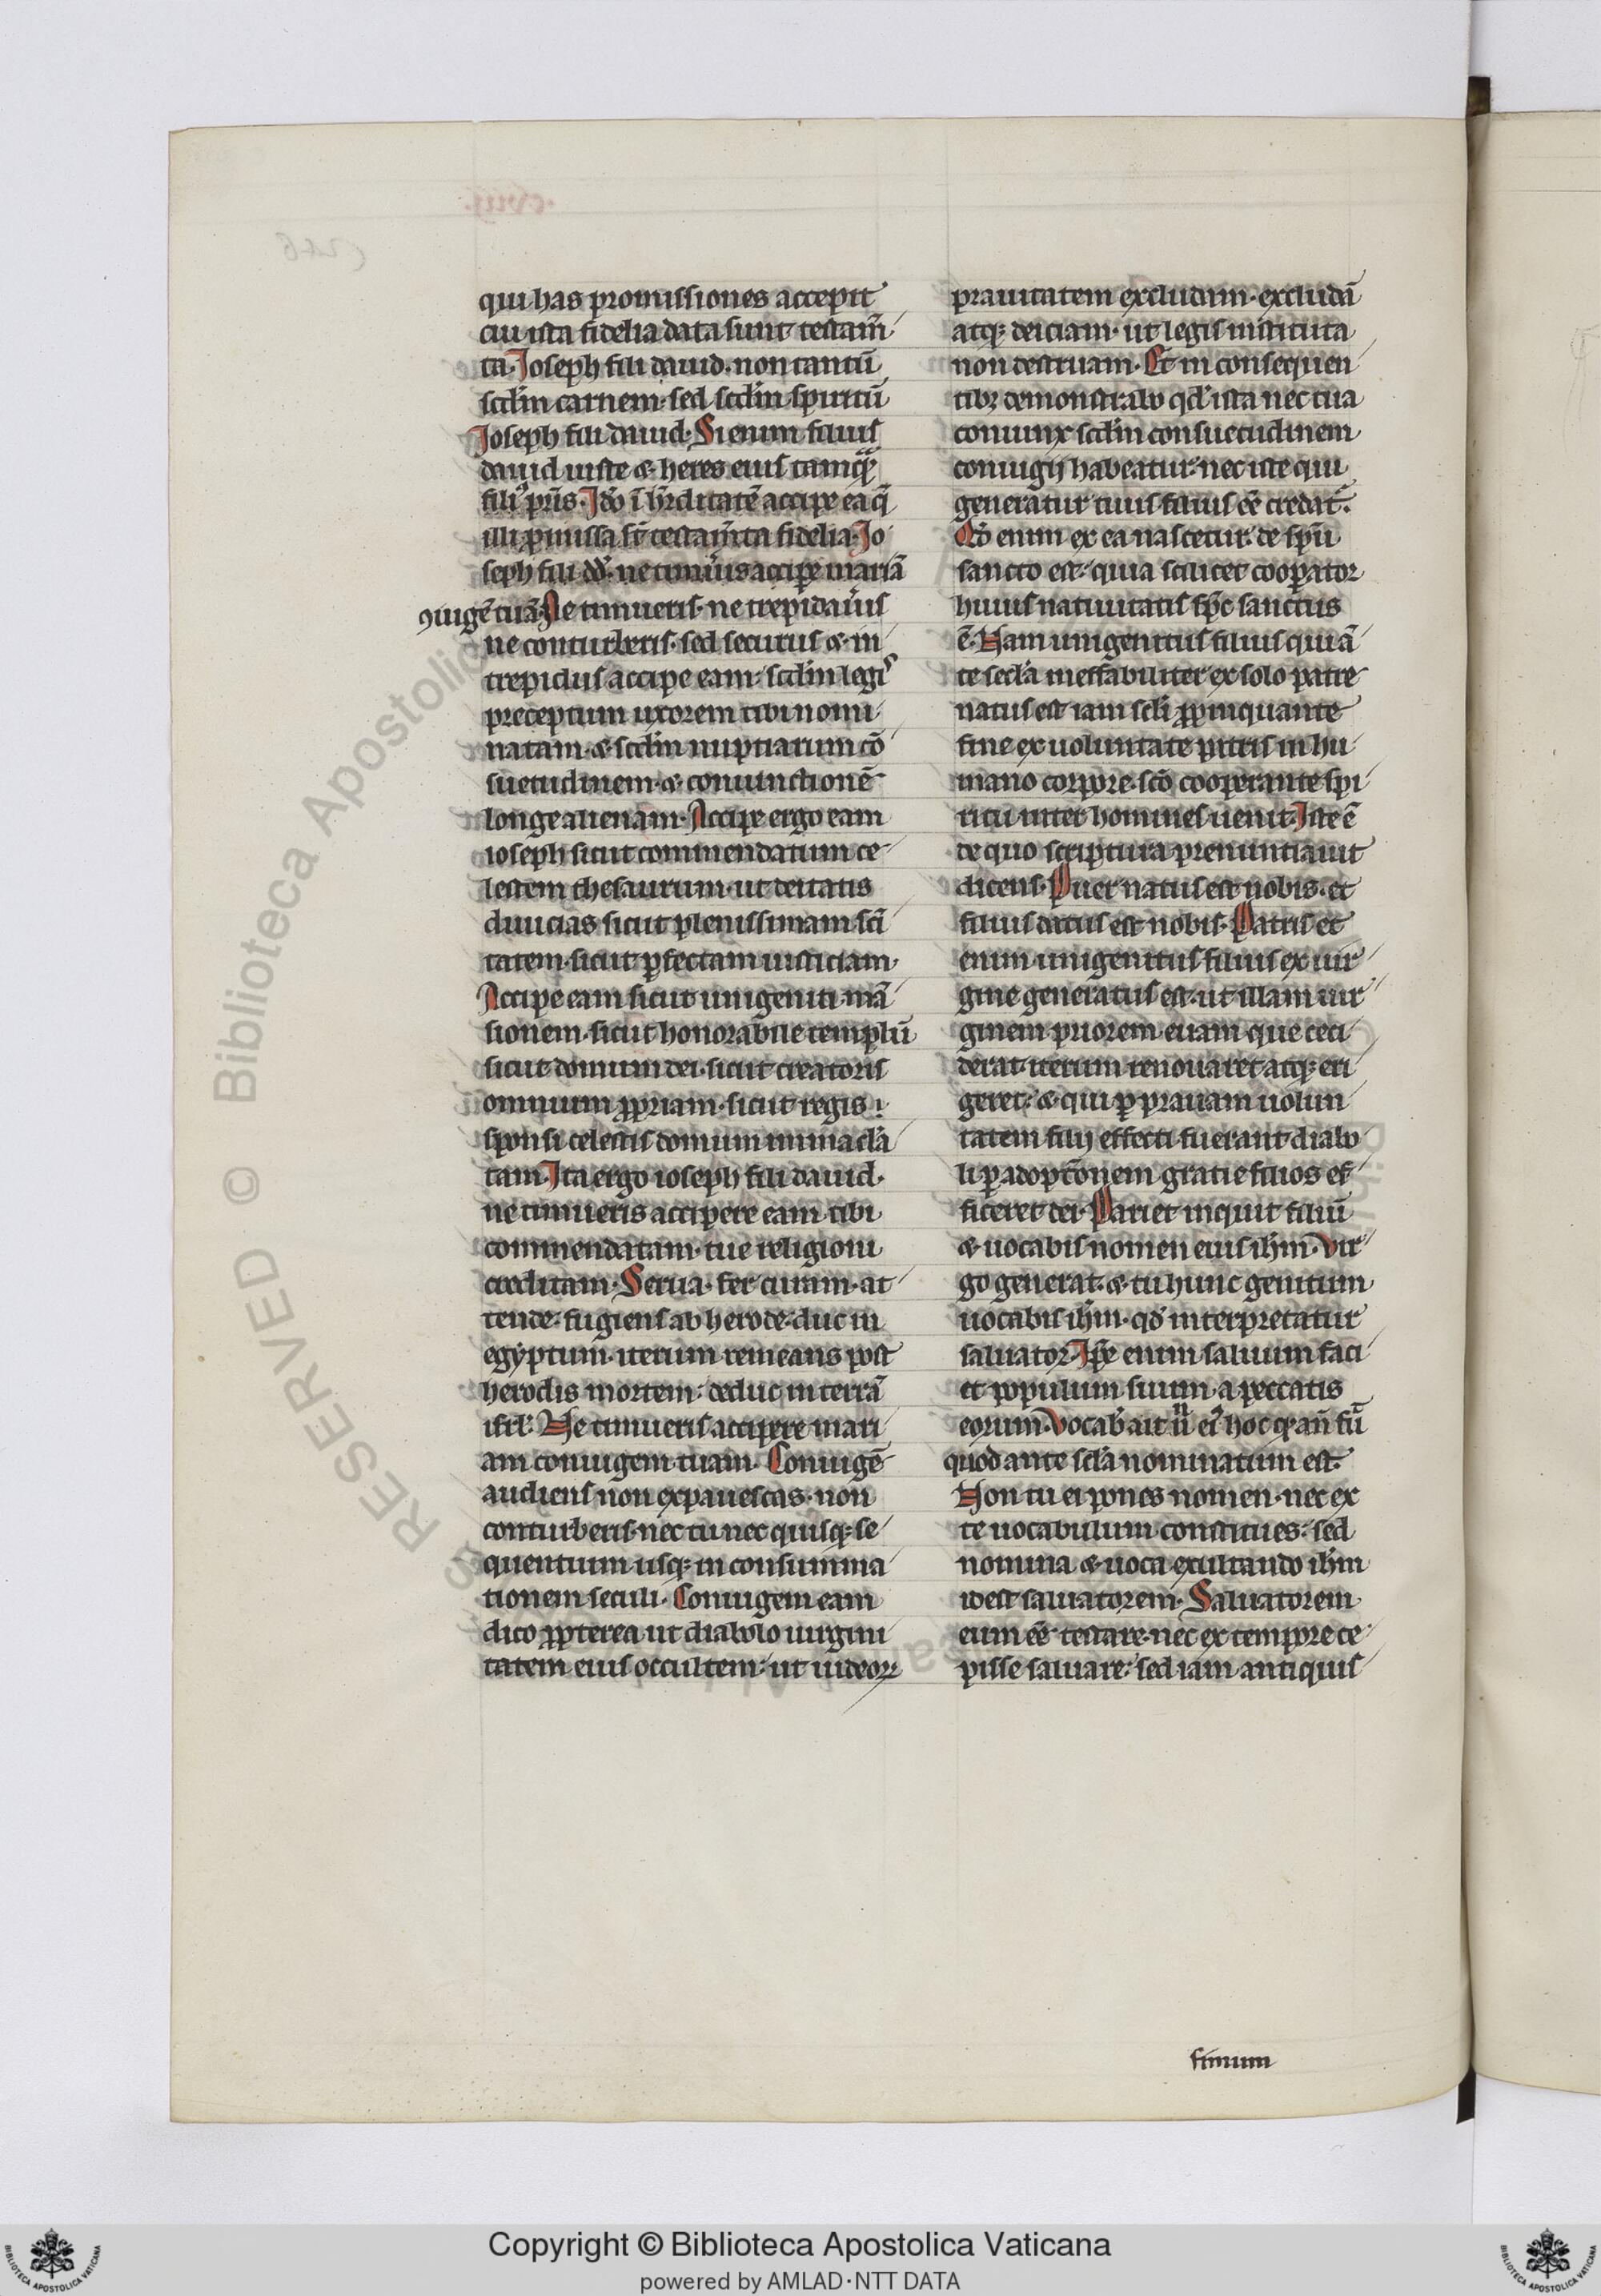 qui has promissiones accepit
cui ista fidelia data sunt testam̄
ta. Joseph fili dauid. non tantū
scd̄m carnem. sed scd̄m spiritū
Joseph fili dauid. Si enim filius
dauid iuste & heres eius tamqͣꝫ
filiꝰ pr̄is. Jdō ī h̄editatē accipe ea q̄
illi ꝓmissa st̄ testam̄ta fidelia. Jo
seph fili dd̄. ne timūis accipe mariā
ꝯiugē tuā. Ne timueris. ne trepidau̓is
ne conturberis. sed securus & in
trepidus accipe eam. scd̄m legis
preceptum uxorem tibi nomi
natam. & scd̄m nuptiarum cō
suetudinem. & coniunctionē
longe alienam. Accipe ergo eam
ioseph sicut commendatum ce
lestem thesaurum. ut deitatis
diuicias sicut plenissimam sc̄i
tatem. sicut ꝑfectam iusticiam.
Accipe eam sicut unigeniti mā
sionem. sicut honorabile templū
sicut domum dei. sicut creatoris
omnium ꝓpriam. sicut regis
sponsi celestis domum immacl̄a
tam. Ita ergo ioseph fili dauid.
ne timueris accipere eam. tibi
commendatam. tue religioni
creditam. Serua. fer curam. at
tende. fugiens ab herode. duc in
egyptum. iterum remeans post
herodis mortem. deduc in terrā
isrl̄. Ne timueris accipere mari
am coniugem tuam. Coniugē
audiens non expauescas. non
conturberis. nec tu nec quisqꝫ se
quentium usqꝫ in consumma
tionem seculi. Coniugem eam
dico ꝓpterea ut diabolo uirgini
tatem eius occultem. ut iudeoꝝ
prauitatem excludam. excludā
atqꝫ deiciam. ut legis instituta
non destruam. Et in consequen
tibꝫ demonstrabo qd̄ ista nec tua
coniunx scd̄m consuetudinem
coniugij habeatur. nec iste qui
generatur tuus filius eē credat᷑.
Qd̄ enim ex ea nascetur. de spū
sancto est. quia scilicet cooꝑator
huius natiuitatis spc̄ sanctus
ē. Nam unigenitus filius qui ā
te secl̄a ineffabiliter ex solo patre
natus est iam scl̄i ꝓpinquante
fine ex uoluntate patris in hu
mano corpore. scō cooperante spi
ritu inter homines uenit. Iste ē
de quo scriptura prenuntiauit
dicens. Puer natus est nobis. et
filius datus est nobis. Patris et
enim unigenitus filius ex uir
gine generatus est. ut illam uir
ginem priorem euam que ceci
derat. iterum renouaret atqꝫ eri
geret. & qui ꝑ prauam uolun
tatem filij effecti fuerant diabo
li ꝑ adoptōnem gratie filios ef
ficeret dei. Pariet inquit filiū
& uocabis nomen eius ih̄m. Vir
go generat. & tu hunc genitum
uocabis ih̄m. qd̄ interpretatur
saluator. Ip̄e enim saluum faci
et populum suum. a peccatis
eorum. Vocab̓ ait ū eiꝰ hoc qͦ an̄ fū
quod ante scl̄a nominatum est.
Non tu ei pones nomen. nec ex
te uocabulum constitues. sed
nomina & uoca exultando ih̄m
idest saluatorem. Saluatorem
eum eē testare. nec ex tempore ce
pisse saluare. sed iam antiquis
simum
Copyright © Biblioteca Apostolica Vaticana
powered by AMLAD·NTT DATA